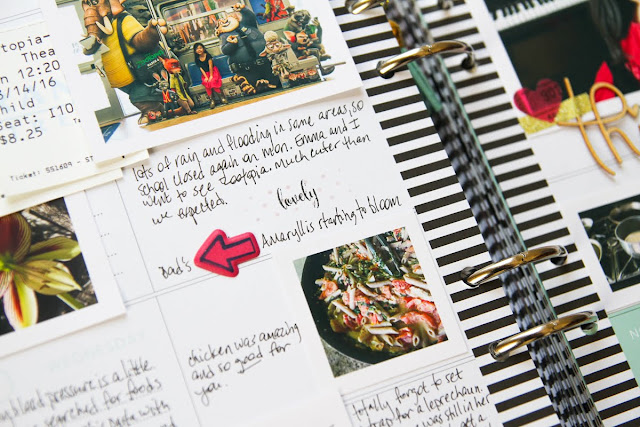 topia-
Thea
n 12:20
/14/16
hild
eat: I10
$8.25
Ticket: 551609 - ST
lots of rain and flooding in some areas, so
school closed again on mon. Emma and I
went to see Zootopia. Much cuter than
we expected.
lovely
Dad's
Amaryllis starting to bloom
chicken was amazing
and so good for
you.
blood pressure is a little
searched for foods
pasta with
totally forgot to set
trap for a leprechaun.
was still in her
get a
N